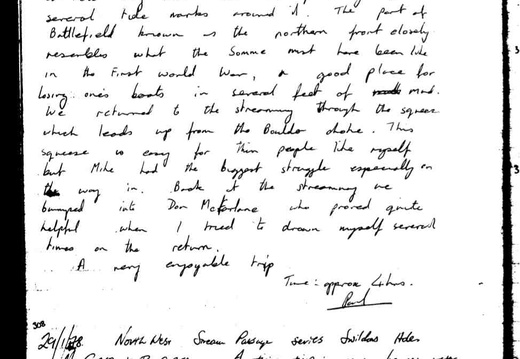 several tide marks around it. The part of
Battlefield known as the northern front closely
resembles what the Somme must have been like
in the First World War, a good place for
losing one's boots in several feet of mud.
We returned to the streamway through the squeeze
which leads up from the Boulder choke. This
squeeze is easy for thin people like myself
but Mike had the biggest struggle especially on
the way in. Back at the streamway we
bumped into Don McFarlane who proved quite
helpful when I tried to drown myself several
times on the return.
A very enjoyable trip
Time: approx 4 hrs.
Paul
308
29/1/78 North West Stream Passage series Swildons Hole